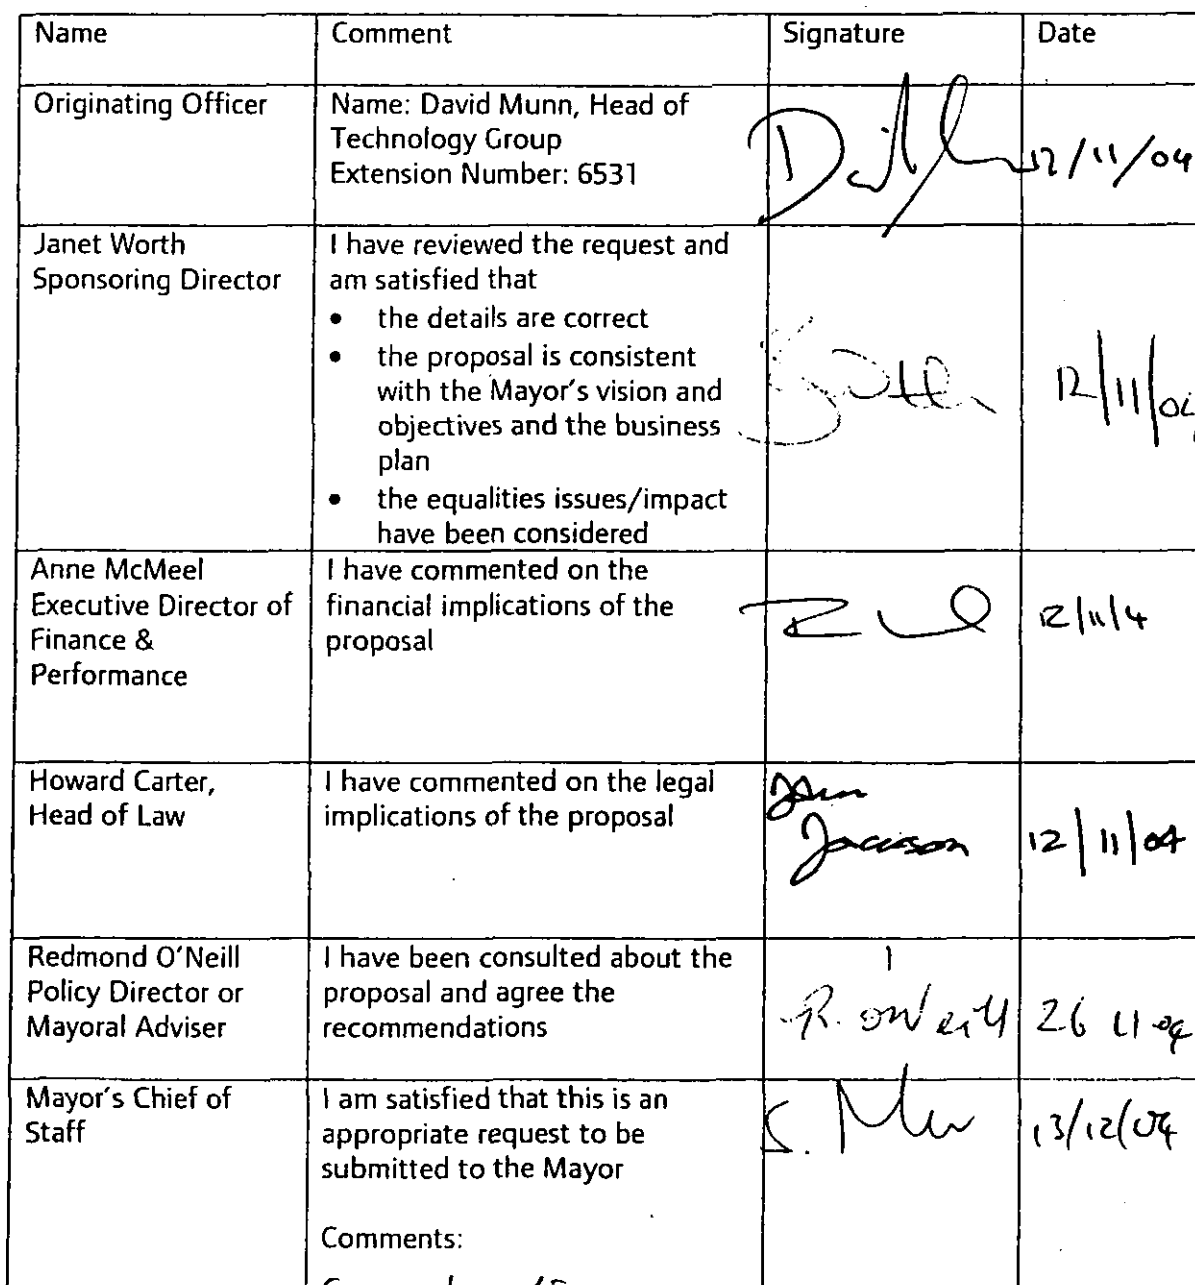 Name Comment Signature Date
Originating Officer
Name: David Munn, Head of
Technology Group
Extension Number: 6531
12/11/04
Janet Worth
Sponsoring Director
I have reviewed the request and
am satisfied that
• the details are correct
• the proposal is consistent
with the Mayor's vision and
objectives and the business
plan
• the equalities issues/impact
have been considered
12/11/04
Anne McMeel
Executive Director of
Finance &
Performance
I have commented on the
financial implications of the
proposal
12/11/4
Howard Carter,
Head of Law
I have commented on the legal
implications of the proposal
John
Jackson
12/11/04
Redmond O'Neill
Policy Director or
Mayoral Adviser
I have been consulted about the
proposal and agree the
recommendations
R. O'Neill
26 11 04
Mayor's Chief of
Staff
I am satisfied that this is an
appropriate request to be
submitted to the Mayor
Comments:
S.
13/12/04